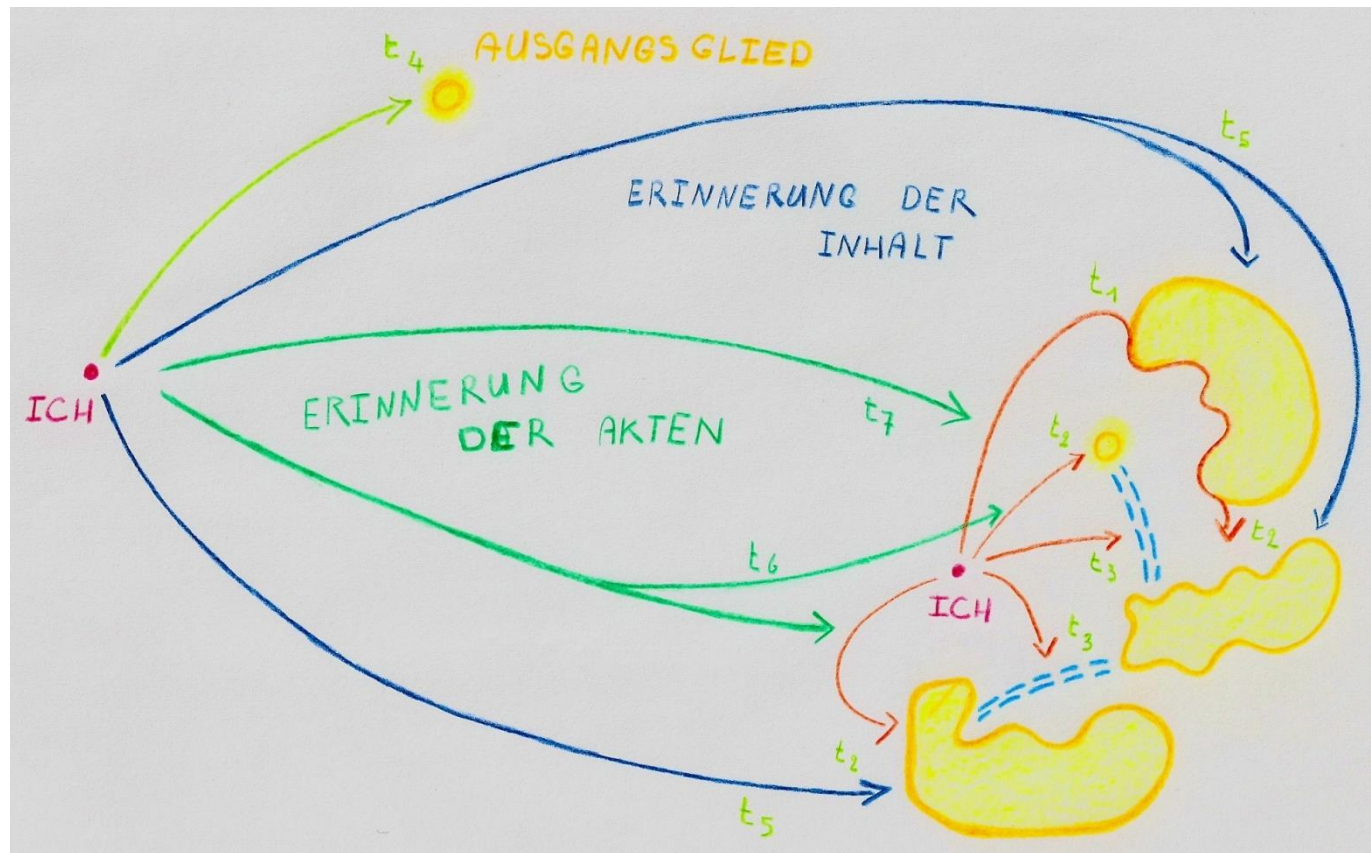 t4 AUSGANGSGLIED
t5
ERINNERUNG DER
INHALT
t1
ICH
ERINNERUNG
DER AKTEN
t7
t2
t2
t3
t6
ICH
t3
t2
t5